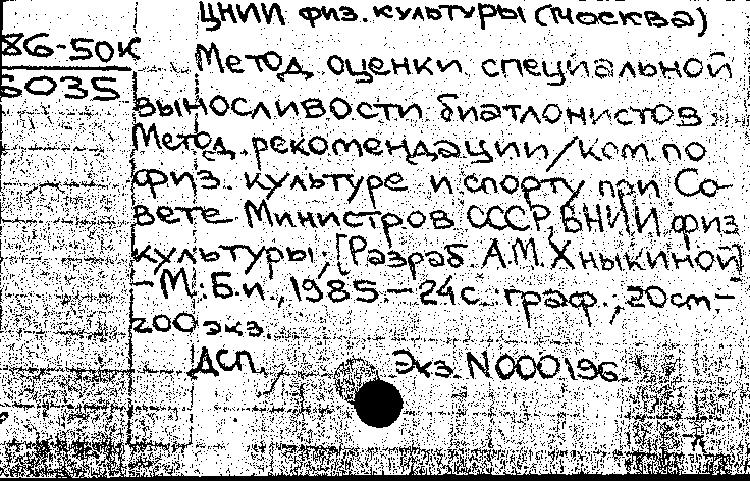 ЦНИИ физ. культуры (Москва)
86-50К
6035
Метод оценки специальной
выносливости биатлонистов:
Метод. рекомендации/Ком. по
физ. культуре и спорту при Со-
вете Министров СССР, ВНИИ физ
культуры; [Разраб. А.М. Хныкиной]
- М.: Б.и., 1985. - 24 с. : граф.; 20 см. -
200 экз.
ДСП.
Экз. N 000196.